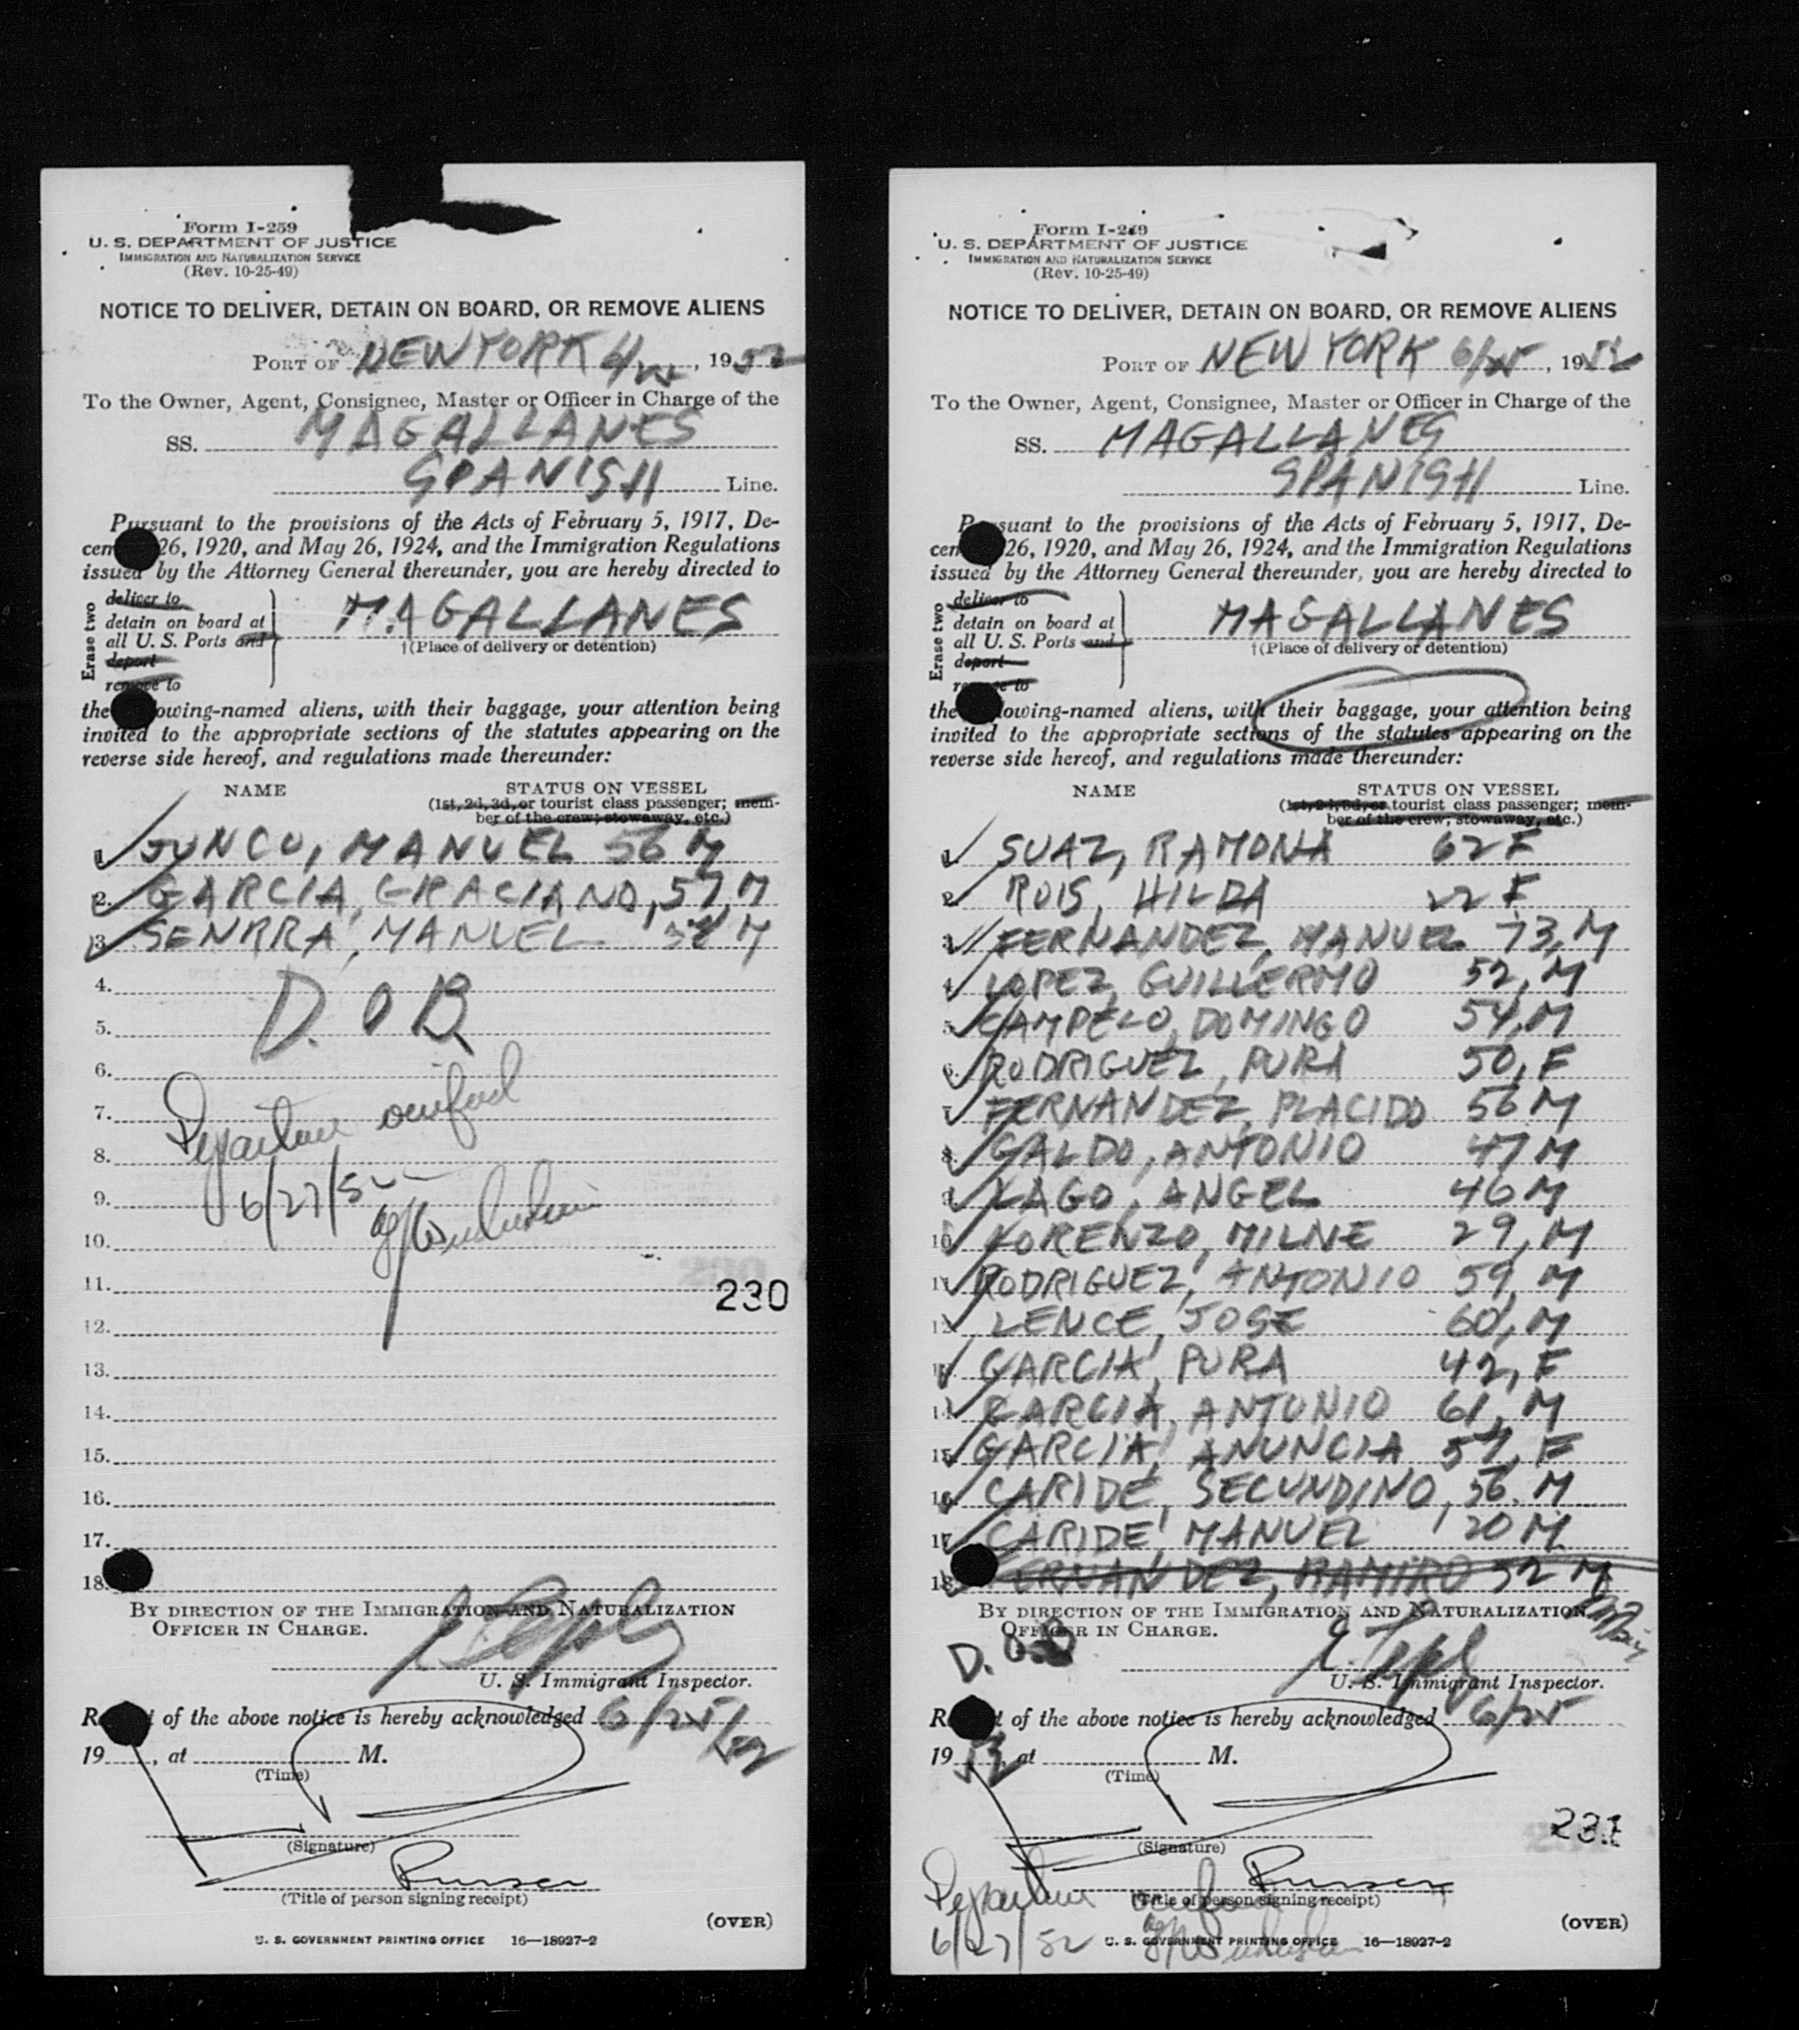 Form I-259
U. S. DEPARTMENT OF JUSTICE
IMMIGRATION AND NATURALIZATION SERVICE
(Rev. 10-25-49)
NOTICE TO DELIVER, DETAIN ON BOARD, OR REMOVE ALIENS
PORT OF NEW YORK 6/25, 1952
To the Owner, Agent, Consignee, Master or Officer in Charge of the
SS. MAGALLANES
SPANISH Line.
Pursuant to the provisions of the Acts of February 5, 1917, De-
cem 26, 1920, and May 26, 1924, and the Immigration Regulations
issued by the Attorney General thereunder, you are hereby directed to
Erase two
deliver to
detain on board at
all U. S. Ports and
deport
remove to
MAGALLANES
†(Place of delivery or detention)
the owing-named aliens, with their baggage, your attention being
invited to the appropriate sections of the statutes appearing on the
reverse side hereof, and regulations made thereunder:
NAME STATUS ON VESSEL
(1st, 2d, 3d, or tourist class passenger; mem-
ber of the crew; stowaway, etc.)
1. JUNCO, MANUEL 56 M
2. GARCIA, GRACIANO, 57, M
3. SENRRA, MANUEL M
4.
D. O B.
5.
6.
7.
Departure verified
8.
9.
6/27/52
10.
11. 230
12.
13.
14.
15.
16.
17.
18.
BY DIRECTION OF THE IMMIGRATION AND NATURALIZATION
OFFICER IN CHARGE.
U. S. Immigrant Inspector.
R t of the above notice is hereby acknowledged 6/25/52
19 , at M.
(Time)
(Signature)
Purser
(Title of person signing receipt)
(OVER)
U. S. GOVERNMENT PRINTING OFFICE 16—18927-2
Form I-259
U. S. DEPARTMENT OF JUSTICE
IMMIGRATION AND NATURALIZATION SERVICE
(Rev. 10-25-49)
NOTICE TO DELIVER, DETAIN ON BOARD, OR REMOVE ALIENS
PORT OF NEW YORK 6/25, 1952
To the Owner, Agent, Consignee, Master or Officer in Charge of the
SS. MAGALLANES
SPANISH Line.
P suant to the provisions of the Acts of February 5, 1917, De-
cem 26, 1920, and May 26, 1924, and the Immigration Regulations
issued by the Attorney General thereunder, you are hereby directed to
Erase two
deliver to
detain on board at
all U. S. Ports and
deport
remove to
MAGALLANES
†(Place of delivery or detention)
the lowing-named aliens, with their baggage, your attention being
invited to the appropriate sections of the statutes appearing on the
reverse side hereof, and regulations made thereunder:
NAME STATUS ON VESSEL
(1st, 2d, 3d, or tourist class passenger; mem-
ber of the crew; stowaway, etc.)
1. SUAZ, RAMONA 62 F
2. ROIS, HILDA 22 F
3. FERNANDEZ, MANUEL 73, M
4. LOPEZ, GUILLERMO 52, M
5. CAMPELO, DOMINGO 54, M
6. RODRIGUEZ, PURA 50, F
7. FERNANDEZ, PLACIDO 56 M
8. GALDO, ANTONIO 47 M
9. LAGO, ANGEL 46 M
10. LORENZO, MILNE 29, M
11. RODRIGUEZ, ANTONIO 59, M
12. LENCE, JOSE 60, M
13. GARCIA, PURA 42, F
14. GARCIA, ANTONIO 61, M
15. GARCIA, ANUNCIA 57, F
16. CARIDE, SECUNDINO, 56. M
17. CARIDE, MANUEL 20 M
18. FERNANDEZ, RAMIRO 52 M
BY DIRECTION OF THE IMMIGRATION AND NATURALIZATION
OFFICER IN CHARGE.
D. O B
U. S. Immigrant Inspector.
R t of the above notice is hereby acknowledged 6/25
1952, at M.
(Time)
231
(Signature)
Purser
Departure verified
(Title of person signing receipt)
(OVER)
6/27/52
U. S. GOVERNMENT PRINTING OFFICE 16—18927-2